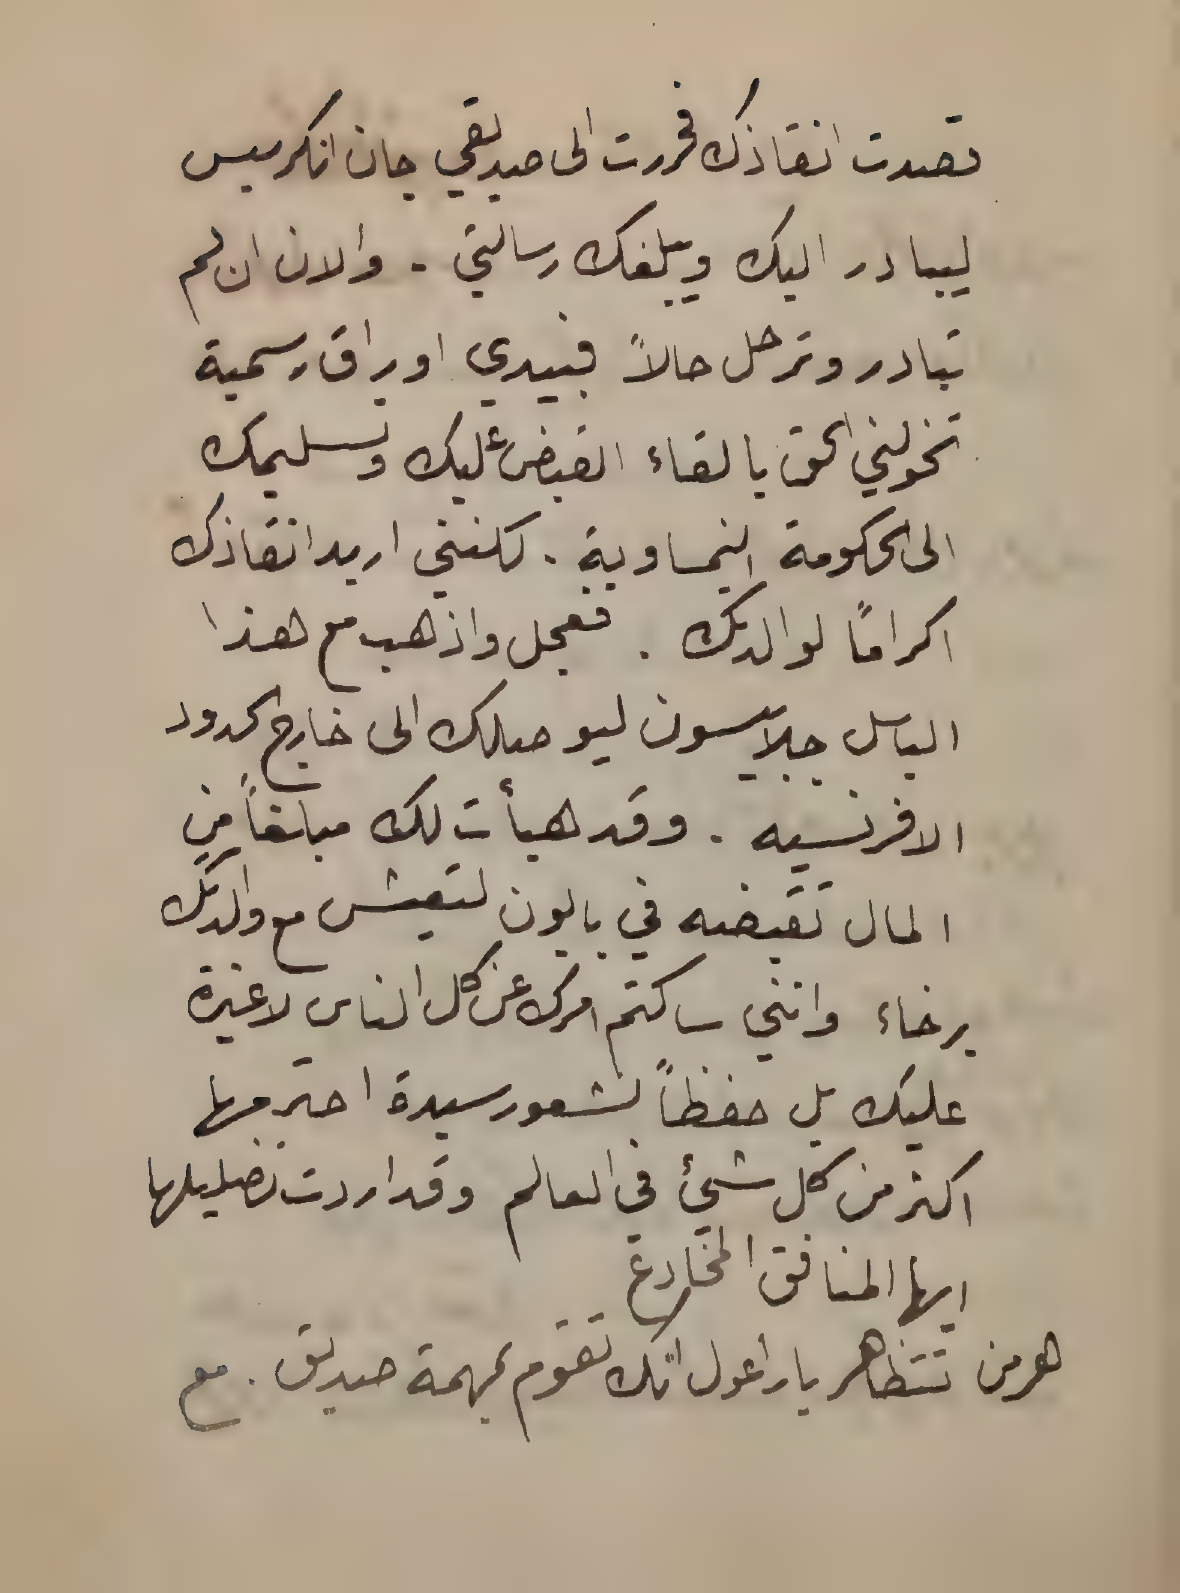 قصدت انقاذك فحررت الى صديقي جان انكرميس
ليبادر اليك ويبلغك رسالتي . والان ان لم
تبادر وترحل حالاً فبيدي اوراق رسمية
تخولني الحق بالقاء القبض عليك وتسليمك
الى الحكومة النمساوية . لكنني اريد انقاذك
اكراماً لوالدتك . فعجل واذهب مع هذا
الباسل جلايسون ليوصلك الى خارج الحدود
الافرنسيه . وقد هيأت لك مبلغاً من
المال تقبضه في بايون لتعيش مع والدتك
برخاء وانني ساكتم امرك عن كل الناس لا غيرة
عليك بل حفظاً لشعور سيدة احترمها
اكثر من كل شيئ في العالم وقد اردت تضليلها
ايها المنافق المخادع
هرمن تتظاهر يا راعول انك تقوم بمهمة صديق . مع